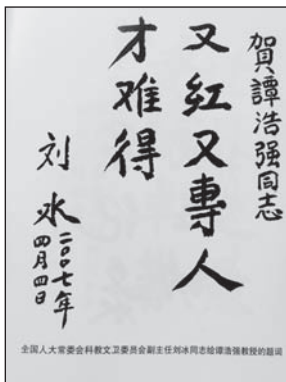 賀譚浩强同志
又红又專人
才难得
刘冰
二〇〇七年
四月四日
全国人大常委会科教文卫委员会副主任刘冰同志给谭浩强教授的题词